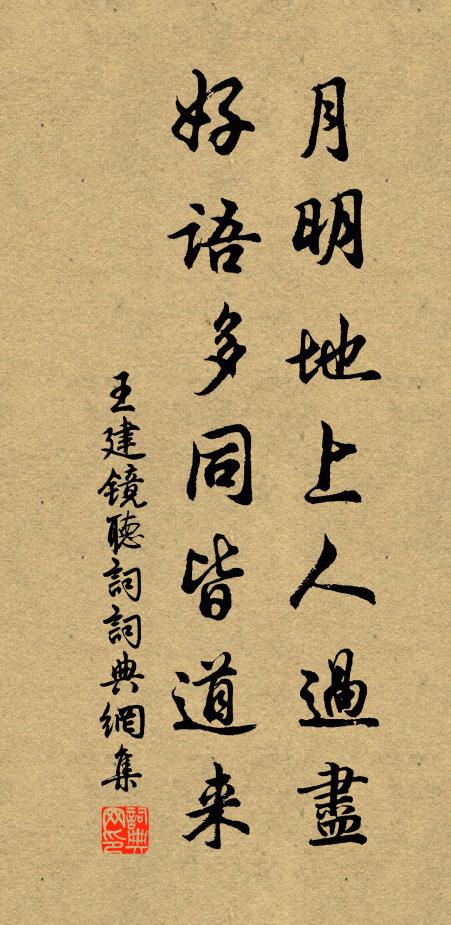 月明地上人過盡
好語多同皆道来
王建镜聽詞詞典網集
詞典網印